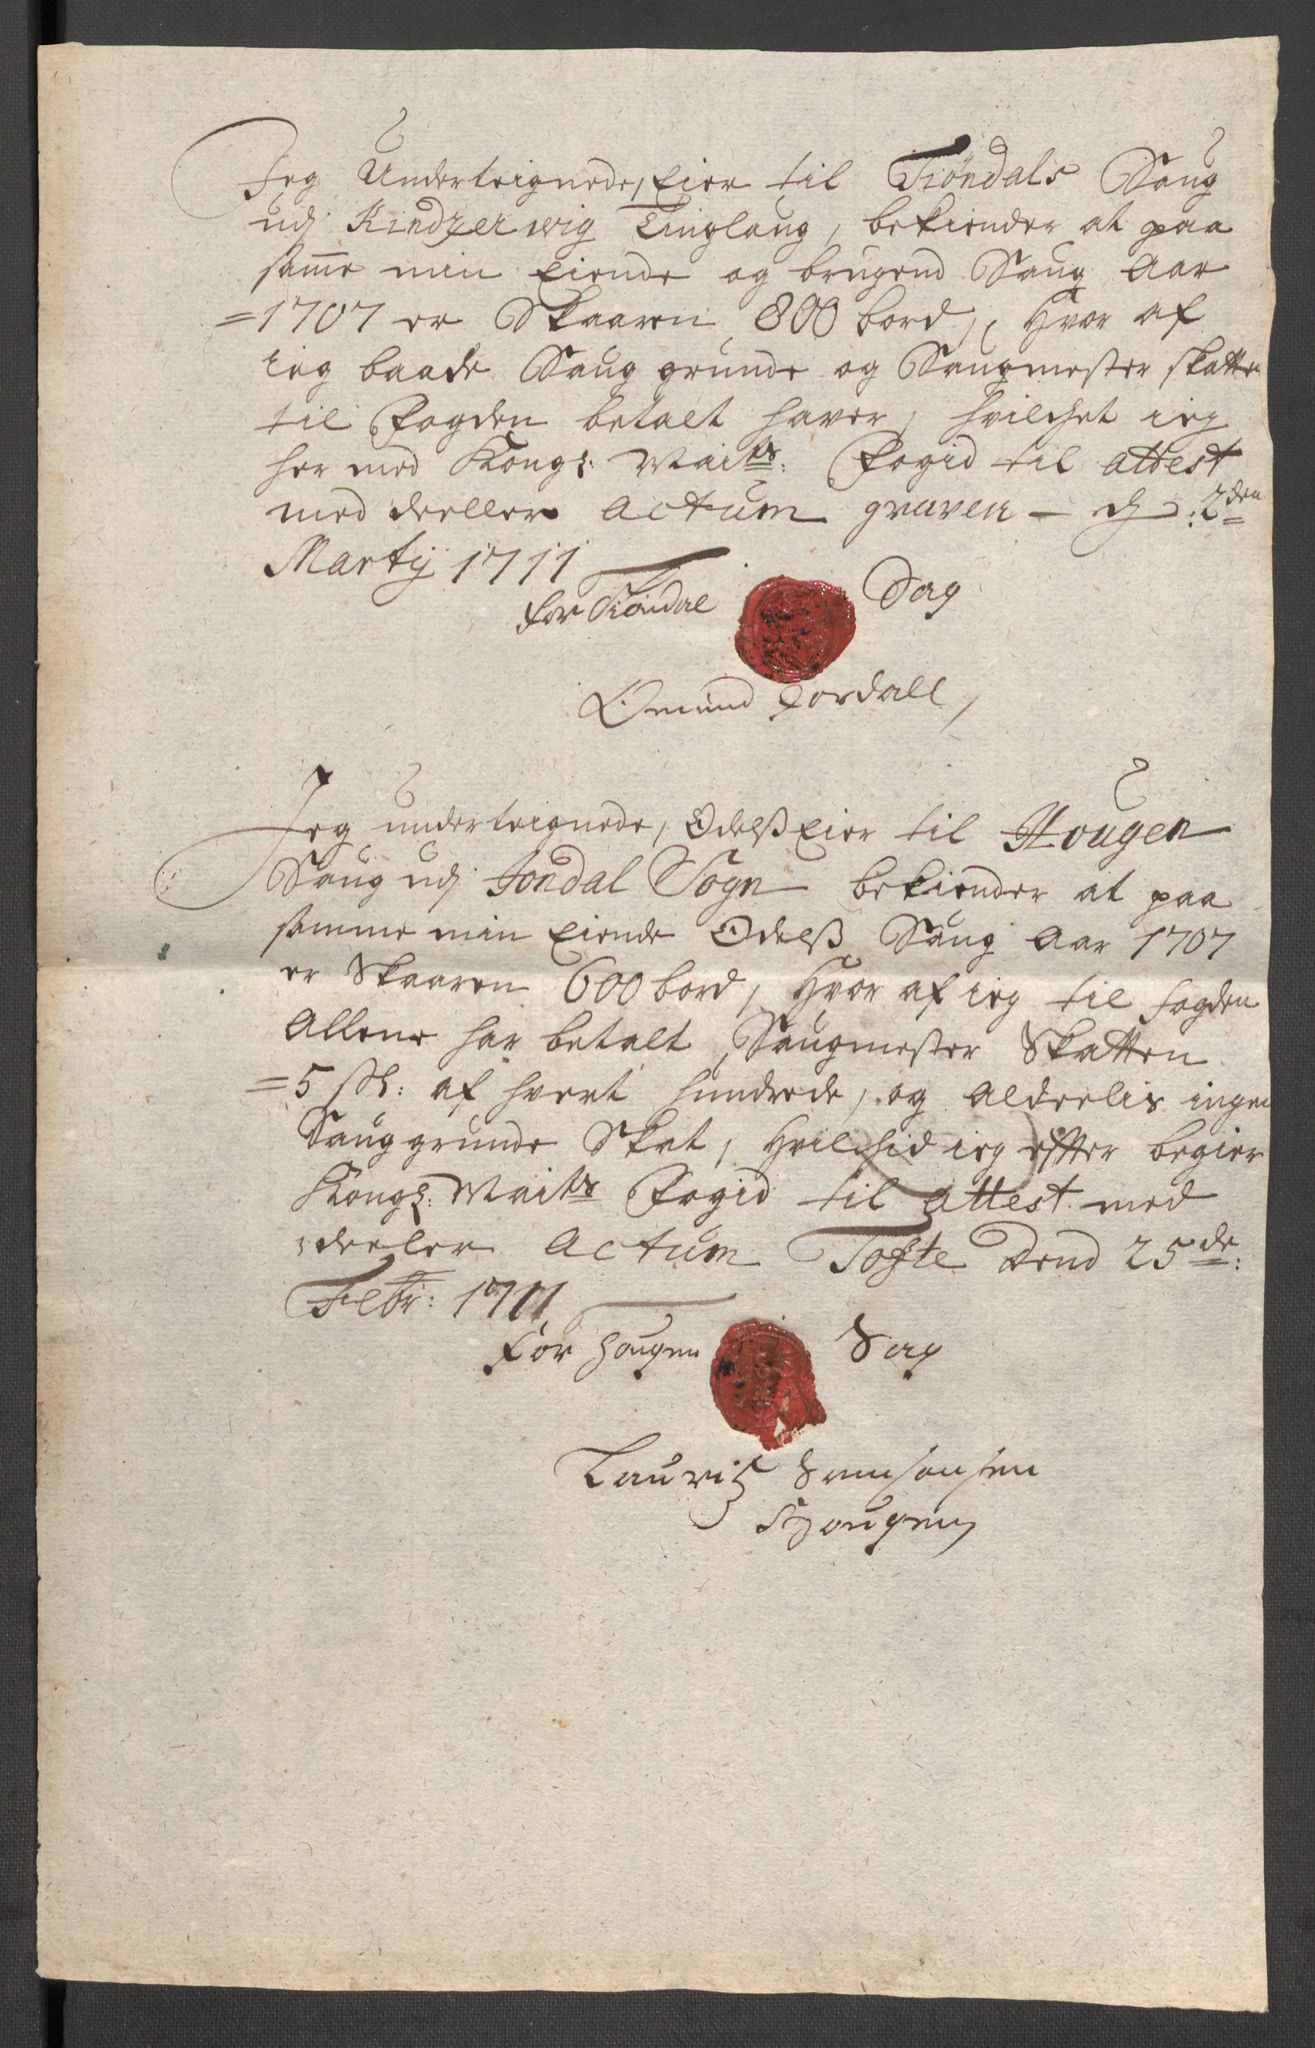 Jeg Underteignede, Eier til Tiöndals Saug
udj Kindzerwig Tinglaug, bekiender at paa
samme min Eiende og brugend Saug Aar
=1707 er Skaaren 800 bord, Hvor af
ieg baade Saug grunde og Saugmester skatten
til Fogden betalt haver, hvilchet ieg
her med Kongl: Maits: Fogid til attest
med deeller Actum graven - d: 2den
Martij 1711
for Tiøndal Sag
Omund Jordall
Jeg underteignede, OdelsEier til Hougen
Saug udj Jondal Sogn bekiender at paa
samme min Eiende Odelß Saug Aar 1707
er Skaaren 600 bord, Hvor af ieg til fogden
Allene har betalt, Saugmester Skatten
=5 sk: af hvert hundrede, og Aldeelis ingen
Saug grunde Skat, Hvilchid ieg efter begier
Kongl: Maits Fogid til attest med
deeler Actum Tofte Dend 25de:
Febr: 1711
For Hougen Sag
Lauriß Svensønsen
Hougen